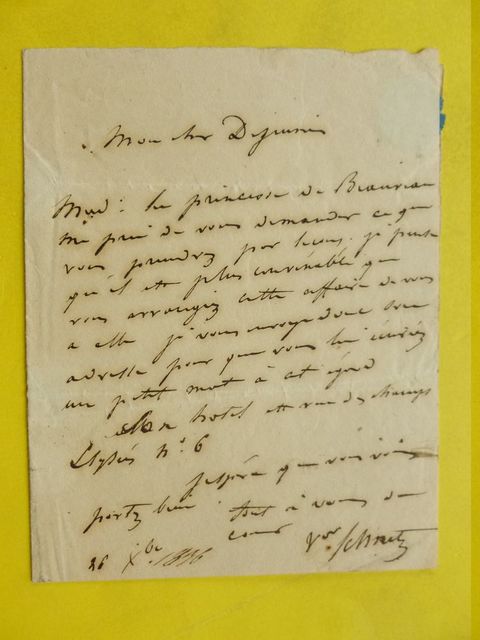 Mon cher Dejunin
Mad: la princesse de Beauveau
me prie de vous demander ce que
vous prendrez par leçons. je pense
qu'il est plus convenable que
vous arrangiez cette affaire de vous
a elle je vous envoye donc son
adresse pour que vous lui écriviez
un petit mot à cet égard
Son hotel est rue des champs
Elysées n.° 6
J'espère que vous vous
portez bien tout à vous de
coeur
26 Xbre 1836